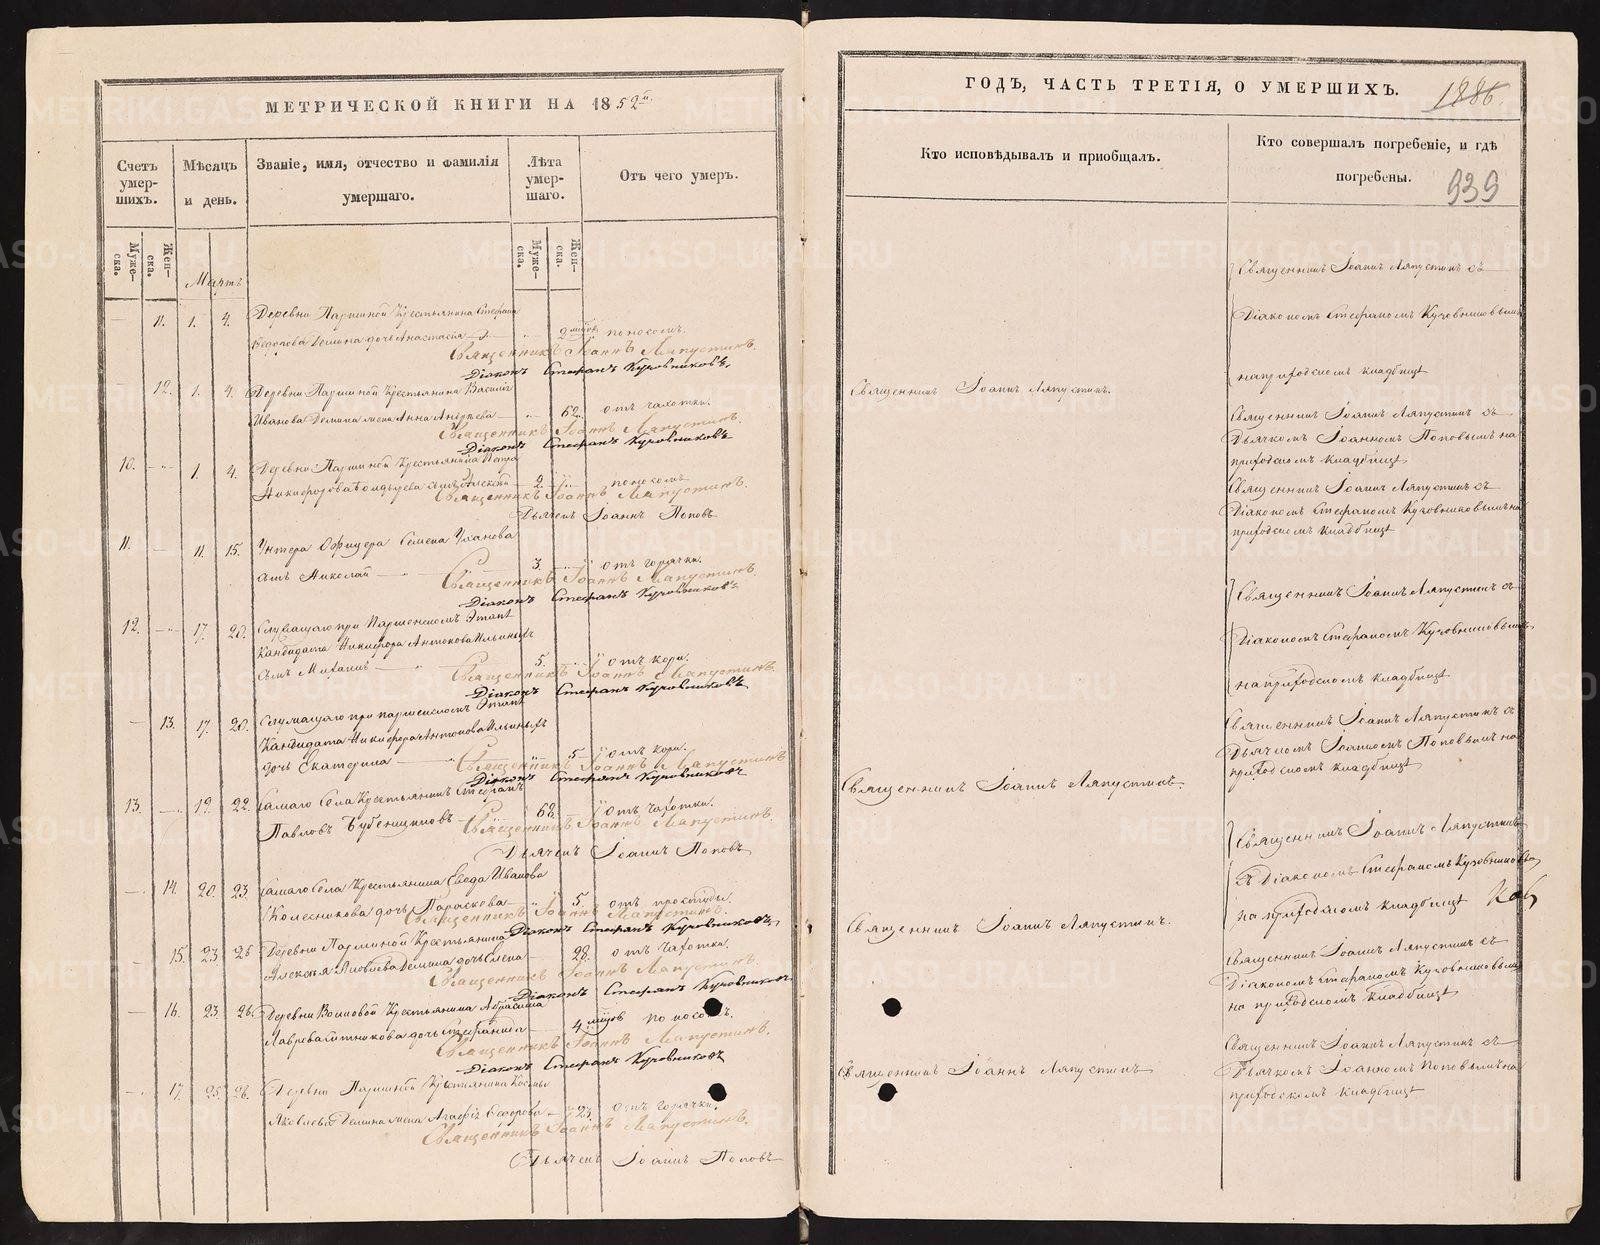 МЕТРИЧЕСКОЙ КНИГИ НА 1852й.
Счетъ умер-шихъ.
Мѣсяцъ и день.
Званіе, имя, отчество и фамилія умершаго.
Лѣта умер-шаго.
Отъ чего умеръ.
Муже-ска.
Жен-ска.
Муже-ска.
Жен-ска.
Мартъ
11. 1. 4. Деревни Паршиной Крестьянина Стефана
Федорова Демина дочь Анастасія 2 мѣсяцовъ поносомъ.
Священникъ Іоаннъ Ляпустинъ.
Діаконъ Стефанъ Кузовниковъ.
12. 1. 4. Деревни Паршиной Крестьянина Василія
Иванова Демина жена Анна Андреева 62. отъ чахотки.
Священникъ Іоаннъ Ляпустинъ.
Діаконъ Стефанъ Кузовниковъ
10. 1. 4. Деревни Паршиной Крестьянина Петра
Никифорова сынъ Алексѣй 2. поносомъ
Священникъ Іоаннъ Ляпустинъ.
Дьячекъ Іоаннъ Поповъ
11. 11. 15. Унтера Офицера Семена Уланова
сынъ Николай 3. отъ горячки.
Священникъ Іоаннъ Ляпустинъ.
Діаконъ Стефанъ Кузовниковъ
12. 17. 20. Служащаго при Паршенскомъ Этапѣ
Кандидата Никифора Антонова Ильиныхъ
сынъ Михаилъ 5. отъ кори.
Священникъ Іоаннъ Ляпустинъ.
Діаконъ Стефанъ Кузовниковъ
13. 17. 20. Служащаго при паршенскомъ Этапѣ
Кандидата Никифора Антонова Ильиныхъ
дочь Екатерина 5. отъ кори.
Священникъ Іоаннъ Ляпустинъ
Діаконъ Стефанъ Кузовниковъ
13. 19. 22. Самаго Села Крестьянинъ Стефанъ
Павловъ Бубенщиковъ 68. отъ чахотки.
Священникъ Іоаннъ Ляпустинъ.
Дьячекъ Іоаннъ Поповъ
14. 20. 23. Самаго Села Крестьянина Иванова
Колесникова дочь Параскева 5. отъ простуды.
Священникъ Іоаннъ Ляпустинъ.
Діаконъ Стефанъ Кузовниковъ
15. 23. 26 Деревни Паршиной Крестьянина
Алексѣя Яковлева Демина дочь Елена 28. отъ чахотки.
Священникъ Іоаннъ Ляпустинъ.
Діаконъ Стефанъ Кузовниковъ
16. 23. 26. Деревни Крестьянина
дочь 4 мѣсяцовъ поносомъ.
Священникъ Іоаннъ Ляпустинъ.
Діаконъ Стефанъ Кузовниковъ
17. 25. 28. Деревни Паршиной Крестьянина Космы
Яковлева Демина жена Агафія Федорова 23. отъ горячки.
Священникъ Іоаннъ Ляпустинъ.
Дьячекъ Іоаннъ Поповъ
ГОДЪ, ЧАСТЬ ТРЕТІЯ, О УМЕРШИХЪ.
1886
Кто исповѣдывалъ и пріобщалъ.
Кто совершалъ погребеніе, и гдѣ погребены.
939
Священникъ Іоаннъ Ляпустинъ съ
Діакономъ Стефаномъ Кузовниковымъ
на приходскомъ кладбищѣ
Священникъ Іоаннъ Ляпустинъ.
Священникъ Іоаннъ Ляпустинъ съ
Дьячкомъ Іоанномъ Поповымъ на
приходскомъ кладбищѣ
Священникъ Іоаннъ Ляпустинъ съ
Діакономъ Стефаномъ Кузовниковымъ на
приходскомъ кладбищѣ
Священникъ Іоаннъ Ляпустинъ съ
Діакономъ Стефаномъ Кузовниковымъ
на приходскомъ кладбищѣ
Священникъ Іоаннъ Ляпустинъ съ
Дьячкомъ Іоанномъ Поповымъ на
приходскомъ кладбищѣ
Священникъ Іоаннъ Ляпустинъ.
Священникъ Іоаннъ Ляпустинъ
съ Діакономъ Стефаномъ Кузовниковымъ
на приходскомъ кладбищѣ
Священникъ Іоаннъ Ляпустинъ.
Священникъ Іоаннъ Ляпустинъ съ
Діакономъ Стефаномъ Кузовниковымъ
на приходскомъ кладбищѣ
Священникъ Іоаннъ Ляпустинъ
Священникъ Іоаннъ Ляпустинъ съ
Дьячкомъ Іоанномъ Поповымъ на
приходскомъ кладбищѣ
METRIKI.GASO-URAL.RU